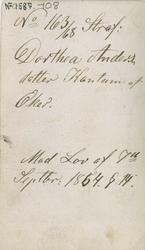 No 1587. 108
No 163/68 Straf:
Dorthea Anders
datter Hantum af
Eker.
Med Lov af 7de
Septbr. 1854. § 14.